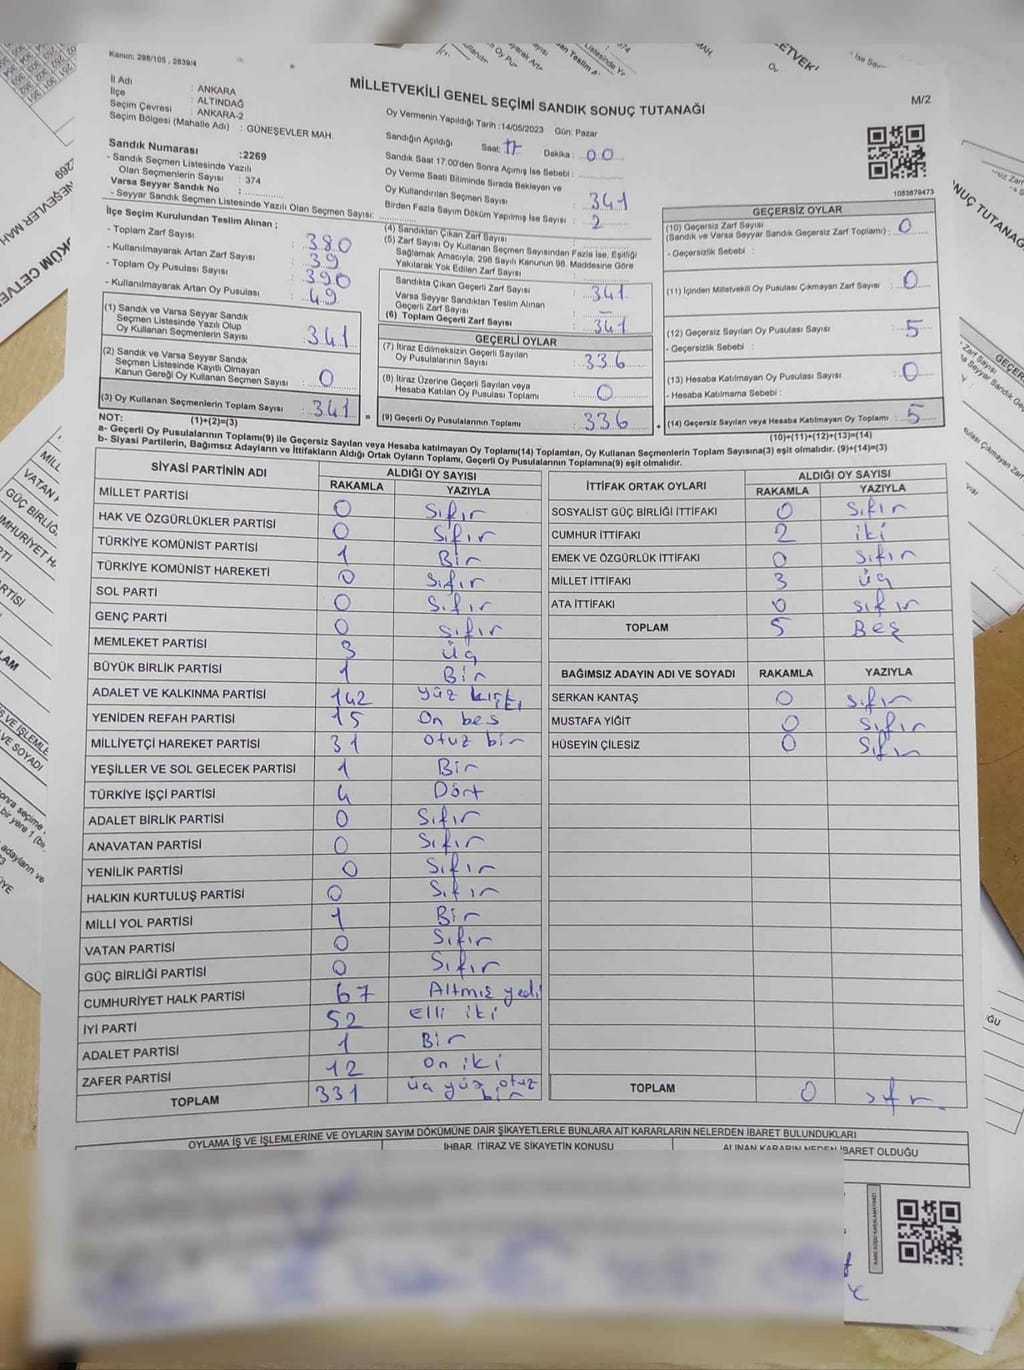 Kanun: 298/105 , 2839/4
MİLLETVEKİLİ GENEL SEÇİMİ SANDIK SONUÇ TUTANAĞI
M/2
İl Adı : ANKARA
İlçe : ALTINDAĞ
Seçim Çevresi : ANKARA-2
Seçim Bölgesi (Mahalle Adı) : GÜNEŞEVLER MAH.
Sandık Numarası :2269
- Sandık Seçmen Listesinde Yazılı
Olan Seçmenlerin Sayısı : 374
Varsa Seyyar Sandık No :
- Seyyar Sandık Seçmen Listesinde Yazılı Olan Seçmen Sayısı:
Oy Vermenin Yapıldığı Tarih :14/05/2023 Gün: Pazar
Sandığın Açıldığı Saat: 17 Dakika : 00
Sandık Saat 17.00'den Sonra Açımış İse Sebebi :
Oy Verme Saati Bitiminde Sırada Bekleyen ve
Oy Kullandırılan Seçmen Sayısı : 341
Birden Fazla Sayım Döküm Yapılmış İse Sayısı : 2
1083679473
İlçe Seçim Kurulundan Teslim Alınan ;
- Toplam Zarf Sayısı : 380
- Kullanılmayarak Artan Zarf Sayısı : 39
- Toplam Oy Pusulası Sayısı : 390
- Kullanılmayarak Artan Oy Pusulası : 49
(1) Sandık ve Varsa Seyyar Sandık
Seçmen Listesinde Yazılı Olup
Oy Kullanan Seçmenlerin Sayısı : 341
(2) Sandık ve Varsa Seyyar Sandık
Seçmen Listesinde Kayıtlı Olmayan
Kanun Gereği Oy Kullanan Seçmen Sayısı : 0
(3) Oy Kullanan Seçmenlerin Toplam Sayısı : 341
(1)+(2)=(3)
(4) Sandıktan Çıkan Zarf Sayısı :
(5) Zarf Sayısı Oy Kullanan Seçmen Sayısından Fazla İse, Eşitliği
Sağlamak Amacıyla; 298 Sayılı Kanunun 98. Maddesine Göre
Yakılarak Yok Edilen Zarf Sayısı :
Sandıkta Çıkan Geçerli Zarf Sayısı : 341
Varsa Seyyar Sandıktan Teslim Alınan
Geçerli Zarf Sayısı : -
(6) Toplam Geçerli Zarf Sayısı : 341
GEÇERLİ OYLAR
(7) İtiraz Edilmeksizin Geçerli Sayılan
Oy Pusulalarının Sayısı : 336
(8) İtiraz Üzerine Geçerli Sayılan veya
Hesaba Katılan Oy Pusulası Toplamı : 0
= (9) Geçerli Oy Pusulalarının Toplamı : 336
GEÇERSİZ OYLAR
(10) Geçersiz Zarf Sayısı
(Sandık ve Varsa Seyyar Sandık Geçersiz Zarf Toplamı) : 0
- Geçersizlik Sebebi :
(11) İçinden Milletvekili Oy Pusulası Çıkmayan Zarf Sayısı : 0
(12) Geçersiz Sayılan Oy Pusulası Sayısı : 5
- Geçersizlik Sebebi :
(13) Hesaba Katılmayan Oy Pusulası Sayısı : 0
- Hesaba Katılmama Sebebi :
+ (14) Geçersiz Sayılan veya Hesaba Katılmayan Oy Toplamı : 5
(10)+(11)+(12)+(13)=(14)
NOT:
a- Geçerli Oy Pusulalarının Toplamı(9) ile Geçersiz Sayılan veya Hesaba katılmayan Oy Toplamı(14) Toplamları, Oy Kullanan Seçmenlerin Toplam Sayısına(3) eşit olmalıdır. (9)+(14)=(3)
b- Siyasi Partilerin, Bağımsız Adayların ve İttifakların Aldığı Ortak Oyların Toplamı, Geçerli Oy Pusulalarının Toplamına(9) eşit olmalıdır.
SİYASİ PARTİNİN ADI ALDIĞI OY SAYISI
RAKAMLA YAZIYLA
MİLLET PARTİSİ 0 Sıfır
HAK VE ÖZGÜRLÜKLER PARTİSİ 0 Sıfır
TÜRKİYE KOMÜNİST PARTİSİ 1 Bir
TÜRKİYE KOMÜNİST HAREKETİ 0 Sıfır
SOL PARTİ 0 Sıfır
GENÇ PARTİ 0 sıfır
MEMLEKET PARTİSİ 3 üç
BÜYÜK BİRLİK PARTİSİ 1 Bir
ADALET VE KALKINMA PARTİSİ 142 yüz
YENİDEN REFAH PARTİSİ 15 On beş
MİLLİYETÇİ HAREKET PARTİSİ 31 otuz bir
YEŞİLLER VE SOL GELECEK PARTİSİ 1 Bir
TÜRKİYE İŞÇİ PARTİSİ 4 Dört
ADALET BİRLİK PARTİSİ 0 Sıfır
ANAVATAN PARTİSİ 0 Sıfır
YENİLİK PARTİSİ 0 Sıfır
HALKIN KURTULUŞ PARTİSİ 0 Sıfır
MİLLİ YOL PARTİSİ 1 Bir
VATAN PARTİSİ 0 Sıfır
GÜÇ BİRLİĞİ PARTİSİ 0 Sıfır
CUMHURİYET HALK PARTİSİ 67 Altmış yedi
İYİ PARTİ 52 elli iki
ADALET PARTİSİ 1 Bir
ZAFER PARTİSİ 12 On iki
TOPLAM 331 üç yüz otuz bir
İTTİFAK ORTAK OYLARI ALDIĞI OY SAYISI
RAKAMLA YAZIYLA
SOSYALİST GÜÇ BİRLİĞİ İTTİFAKI 0 Sıfır
CUMHUR İTTİFAKI 2 iki
EMEK VE ÖZGÜRLÜK İTTİFAKI 0 Sıfır
MİLLET İTTİFAKI 3 üç
ATA İTTİFAKI 0 sıfır
TOPLAM 5 Beş
BAĞIMSIZ ADAYIN ADI VE SOYADI RAKAMLA YAZIYLA
SERKAN KANTAŞ 0 sıfır
MUSTAFA YİĞİT 0 Sıfır
HÜSEYİN ÇİLESİZ 0 Sıfır
TOPLAM 0 sıfır
OYLAMA İŞ VE İŞLEMLERİNE VE OYLARIN SAYIM DÖKÜMÜNE DAİR ŞİKAYETLERLE BUNLARA AİT KARARLARIN NELERDEN İBARET BULUNDUKLARI
İHBAR, İTİRAZ VE ŞİKAYETİN KONUSU
ALINAN KARARIN NEDEN İBARET OLDUĞU